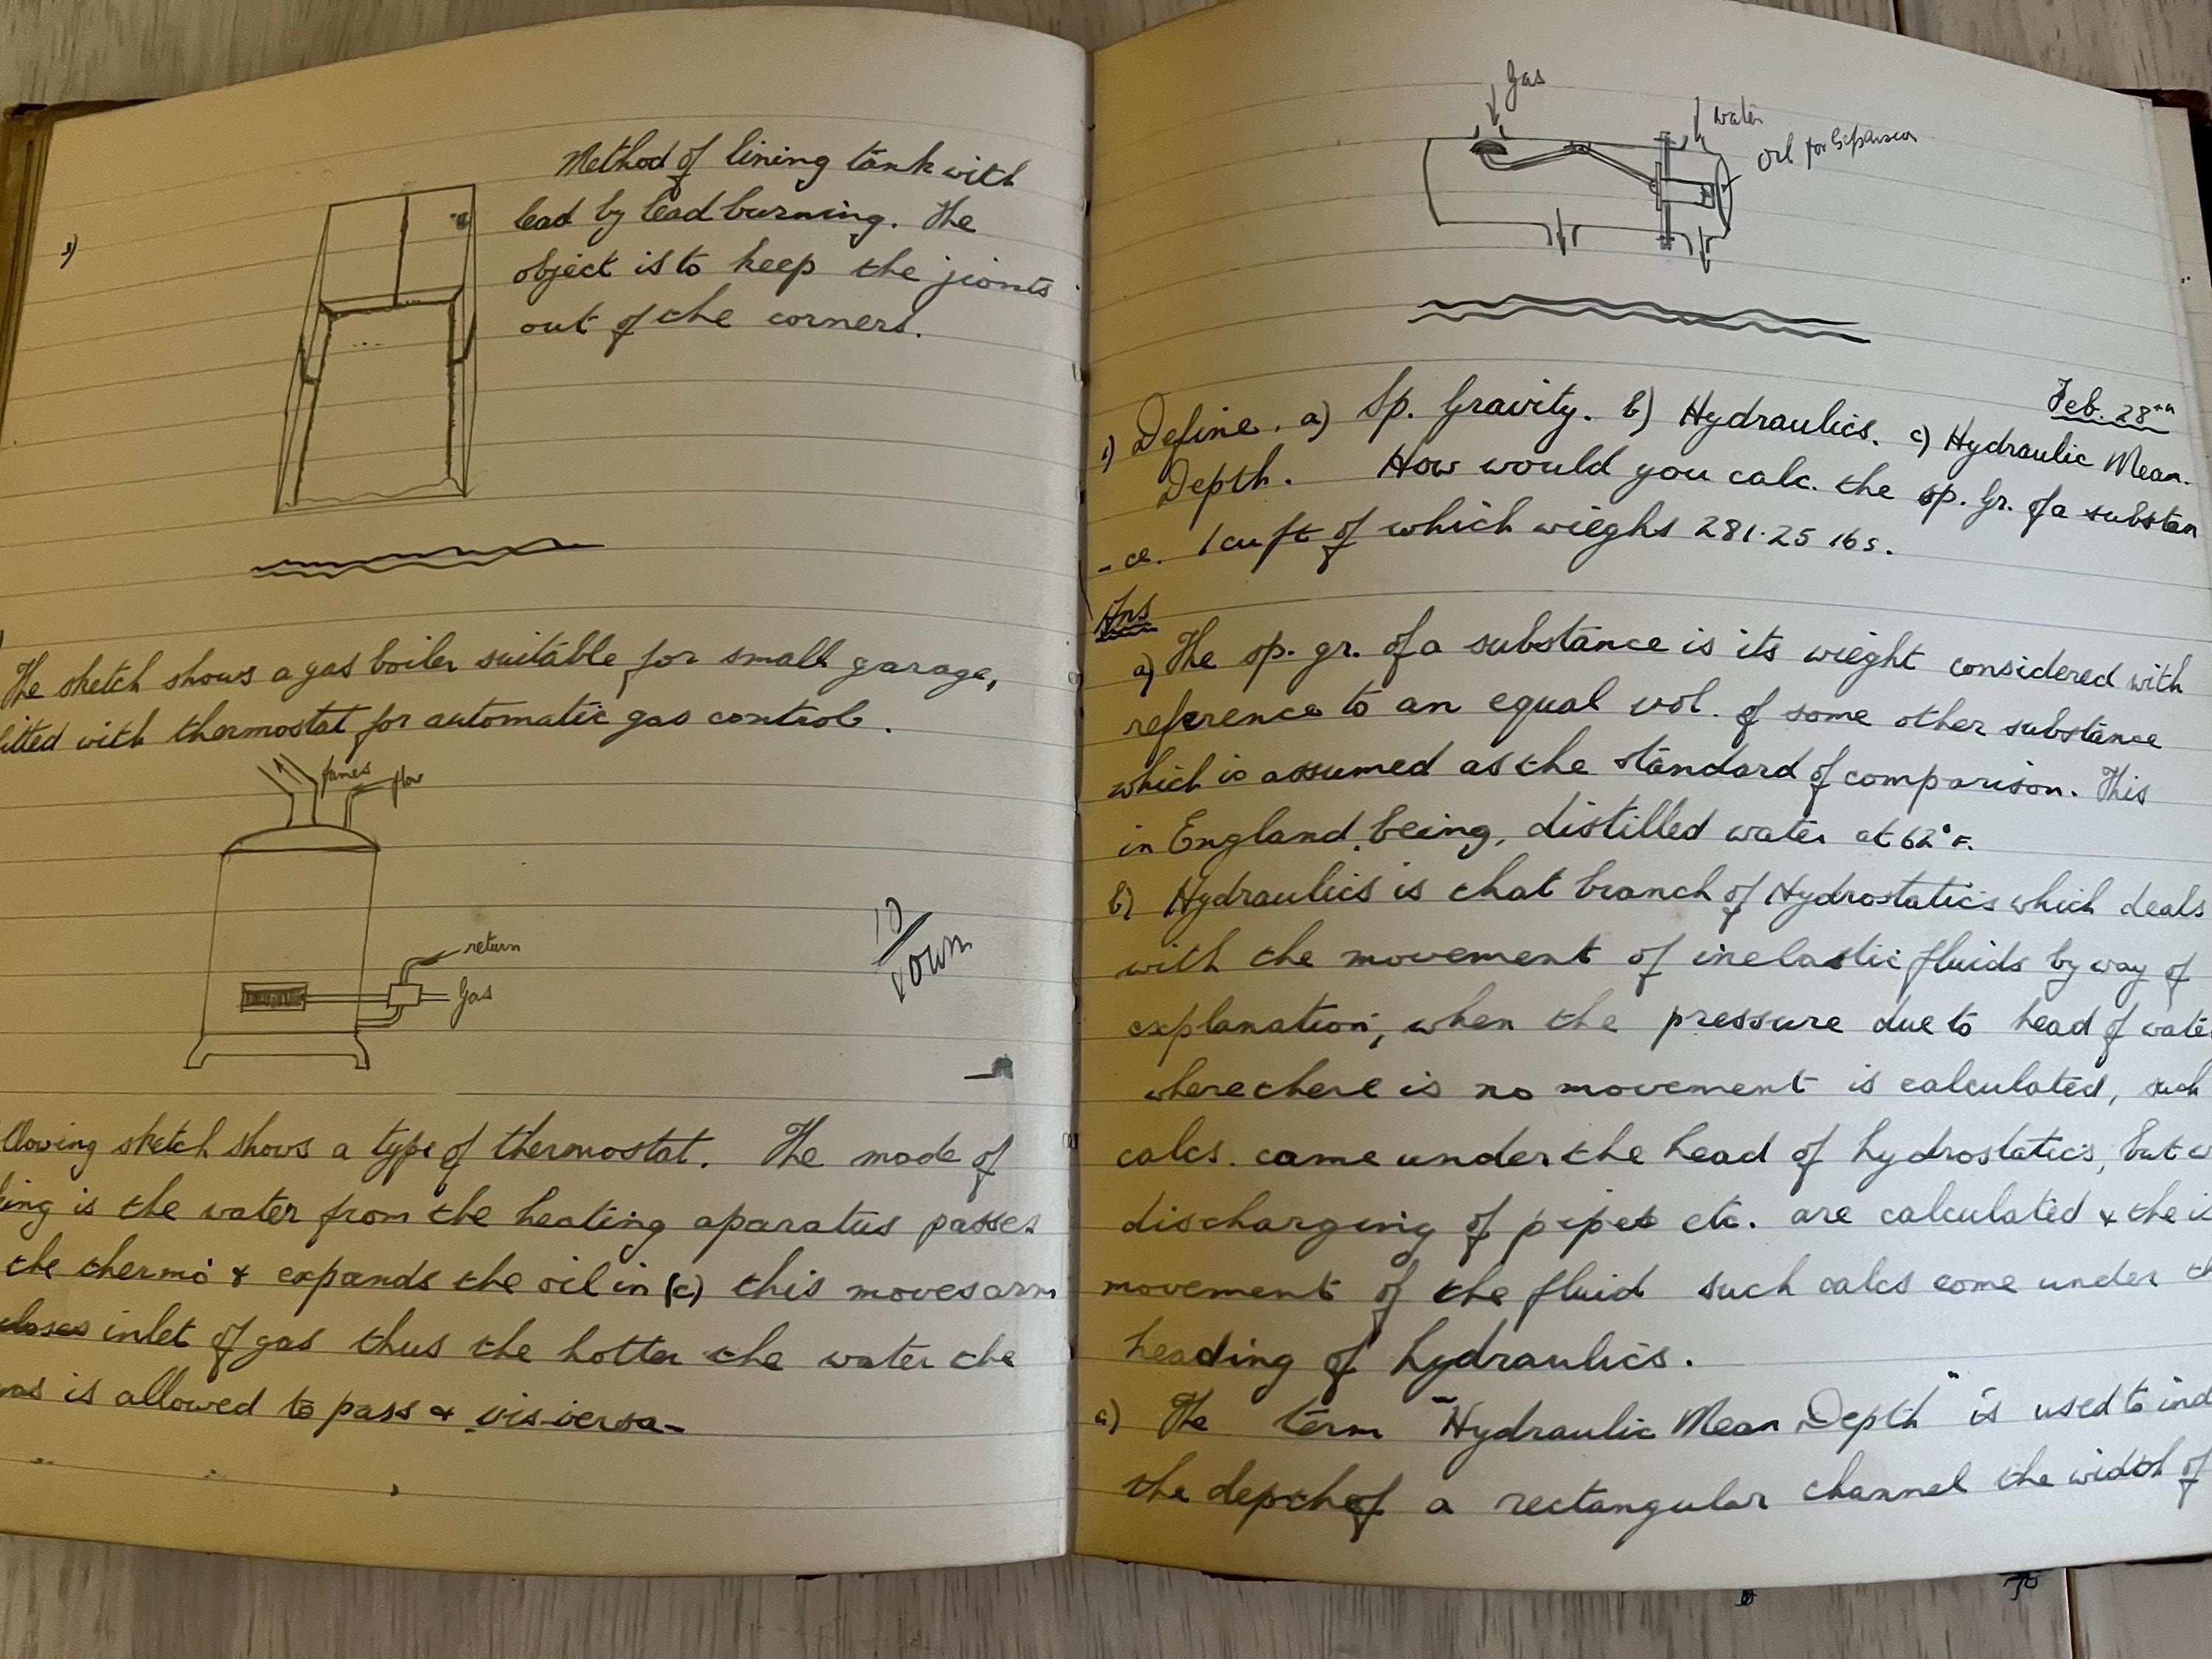 Method of lining tank with
lead by lead burning. The
object is to keep the jionts
out of the corners.
The sketch shows a gas boiler suitable for small garage,
fitted with thermostat for automatic gas control.
fumes
flow
return
Gas
10
down
llowing sketch shows a type of thermostat. The mode of
king is the water from the heating aparatus passes
the thermo & expands the oil in (c) this moves arm
closes inlet of gas thus the hotter the water the
gas is allowed to pass & vis-versa-
Gas
water
Oil for Expansion
Feb. 28th
1) Define. a) Sp. Gravity. b) Hydraulics. c) Hydraulic Mean.
Depth. How would you calc. the sp. Gr. of a substan
-ce. 1 cu ft of which wieghs 281.25 lbs.
Ans
a) The sp. gr. of a substance is its wieght considered with
reference to an equal vol. of some other substance
which is assumed as the standard of comparison. This
in England, being, distilled water at 62°F.
b) Hydraulics is that branch of Hydrostatics which deals
with the movement of inelastic fluids by way of
explanation, when the pressure due to head of water
where there is no movement is calculated, such
calcs. came under the head of hydrostatics, but w
discharging of pipes etc. are calculated & the is
movement of the fluid such calcs come under th
heading of hydraulics.
c) The term "Hydraulic Mean Depth" is used to ind
the depth of a rectangular channel the width of